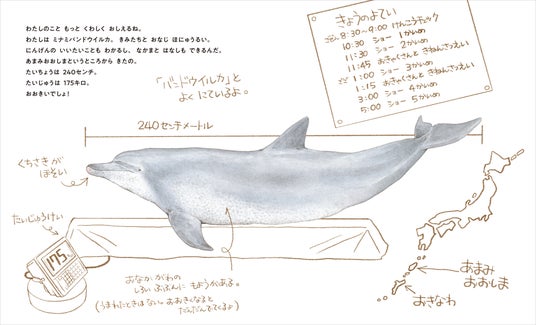 わたしのこと もっと くわしく おしえるね。
わたしは ミナミバンドウイルカ。 きみたちと おなじ ほにゅうるい。
にんげんの いいたいことも わかるし、なかまと はなしも できるんだ。
あまみおおしまというところから きたの。
たいちょうは 240センチ。
たいじゅうは 175キロ。
おおきいでしょ！
きょうのよてい
8:30～9:00 けんこうチェック
10:30 ショー 1かいめ
11:30 ショー 2かいめ
11:45 おきゃくさんと きねんさつえい
1:00 ショー 3かいめ
1:15 おきゃくさんと きねんさつえい
3:00 ショー 4かいめ
5:00 ショー 5かいめ
「バンドウイルカ」と
よく にているよ。
240センチメートル
くちさきが
ほそい
たいじゅうけい
175
おなかがわの
しろいぶぶんに もようがある。
(うまれたときはない。おおきくなると
だんだんでてくるよ)
あまみ
おおしま
おきなわ